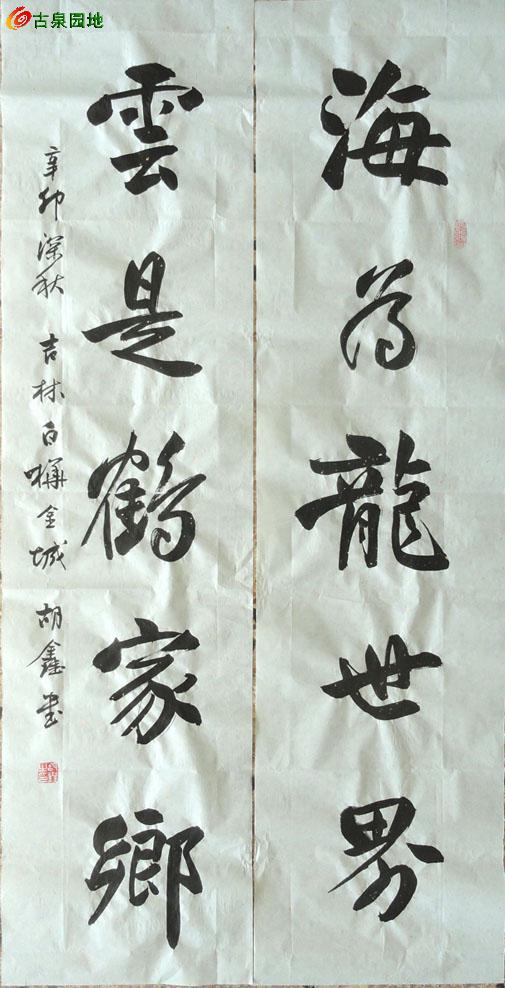 古泉园地
海为龍世界
雲是鶴家鄉
辛卯深秋 吉林白樺金城 胡鑫書